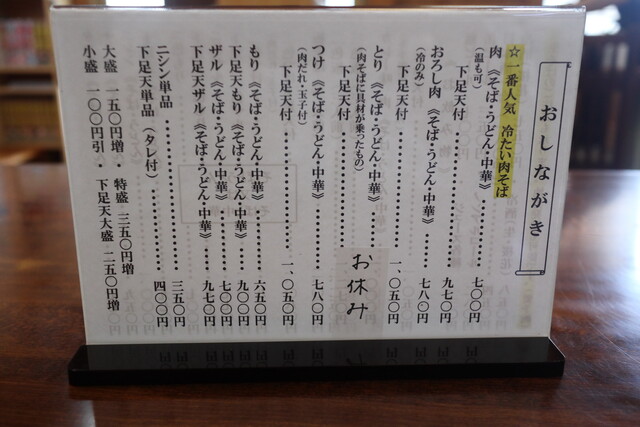 おしながき
☆一番人気 冷たい肉そば
肉《そば・うどん・中華》……七〇〇円
(温も可)
下足天付……九七〇円
おろし肉《そば・うどん・中華》……七八〇円
(冷のみ)
下足天付……一、〇五〇円
とり《そば・うどん・中華》
(肉そばに具材が乗ったもの)
下足天付
お休み
つけ《そば・うどん・中華》……七八〇円
(肉だれ・玉子付)
下足天付……一、〇五〇円
もり《そば・うどん・中華》……六五〇円
下足天もり《そば・うどん・中華》……九〇〇円
ザル《そば・うどん・中華》……七〇〇円
下足天ザル《そば・うどん・中華》……九七〇円
ニシン単品……三五〇円
下足天単品(タレ付)……四〇〇円
大盛 一五〇円増・特盛 三五〇円増
小盛 一〇〇円引・下足天大盛 二五〇円増